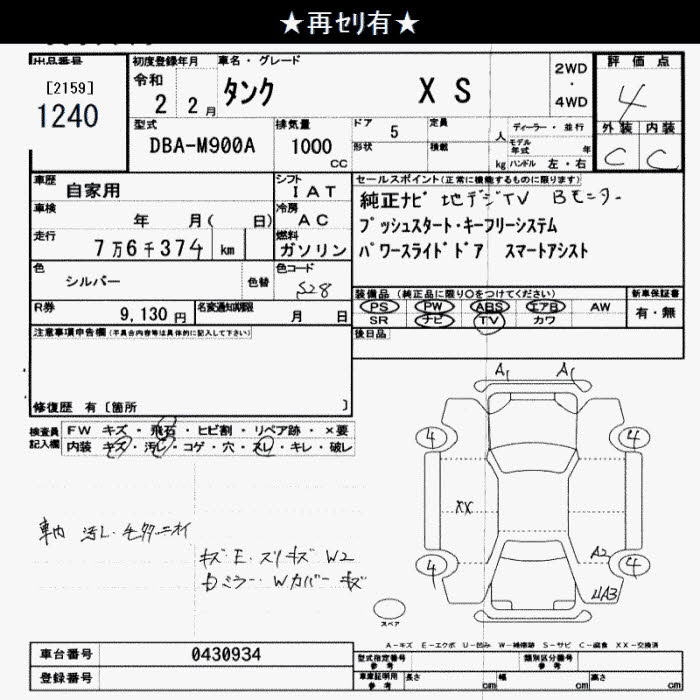 ★再ｾﾘ有★
出品番号 初度登録年月 車名・グレード 評価点
[2159] 1240 令和 2 2月 タンク X S 2WD・4WD 4
型式 排気量 ドア 5 定員 人 ディーラー・並行 外装 内装
DBA-M900A 1000 cc 形状 積載 kg モデル年式 年 ハンドル 左・右 C C
車歴 自家用 シフト I A T セールスポイント(正常に機能するものに限ります)
車検 年 月( 日) 冷房 A C 純正ナビ 地デジTV Bモニター
走行 7万6千374 km 燃料 ガソリン プッシュスタート・キーフリーシステム
パワースライドドア スマートアシスト
色 シルバー 色替 色コード S28
装備品 (純正品に限り○をつけてください) 新車保証書
R券 9,130円 名変通知期限 月 日 PS PW ABS エアB AW 有・無
SR ナビ TV カワ
注意事項申告欄(不具合内容等は具体的に記入して下さい) 後日品
修復歴 有〔箇所 〕
検査員記入欄 FW キズ・飛石・ヒビ割・リペア跡・×要
内装 キズ・汚れ・コゲ・穴・スレ・キレ・破レ
A1 A1
4 4
XX
A2
4 4
UA3
車内 汚レ・毛多・ニオイ
キズ・E・スリキズ W2
ミラー・Wカバーキズ
スペア
A-キズ E-エクボ U-凹み W-補修跡 S-サビ C-腐食 XX-交換済
車台番号 0430934 型式指定番号 参考 類別区分番号 参考
登録番号 車庫証明用 参考 長さ cm 幅 cm 高さ cm